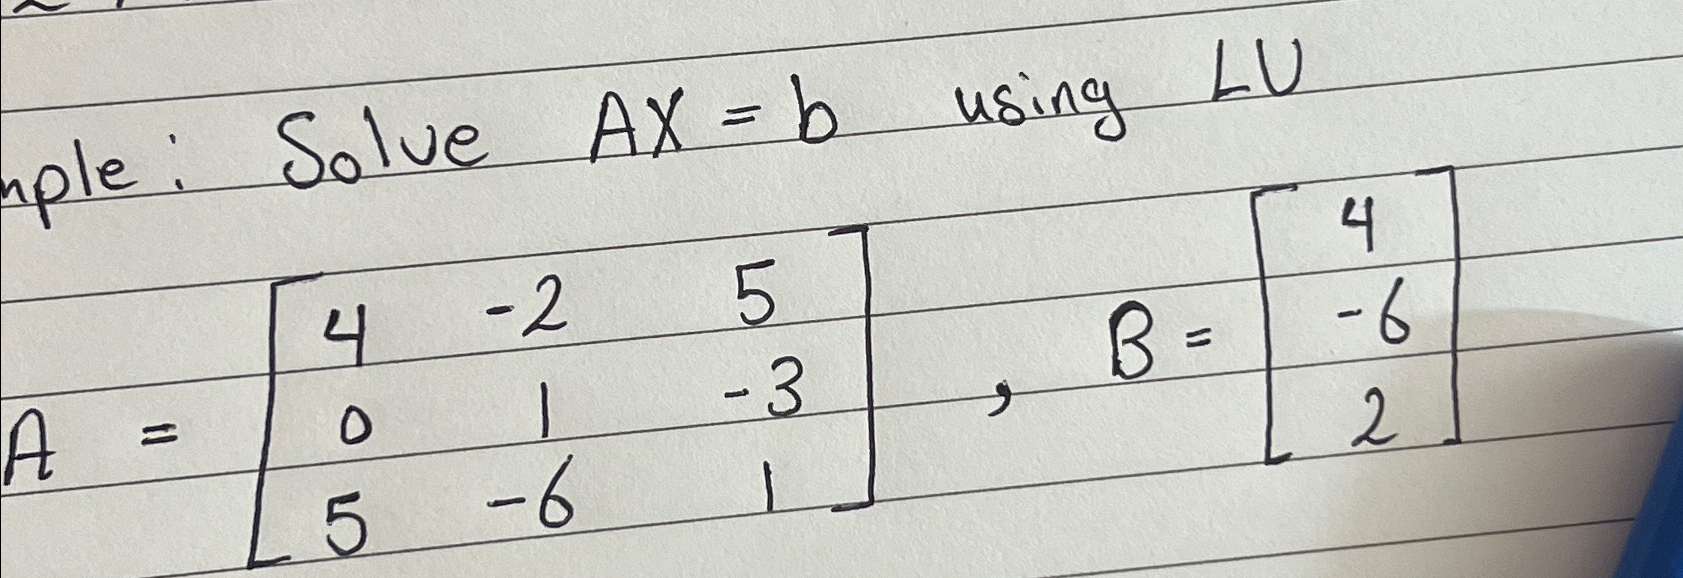 mple: Solve AX = b using LU
A = [4 -2 5
0 1 -3
5 -6 1], B = [4
-6
2]